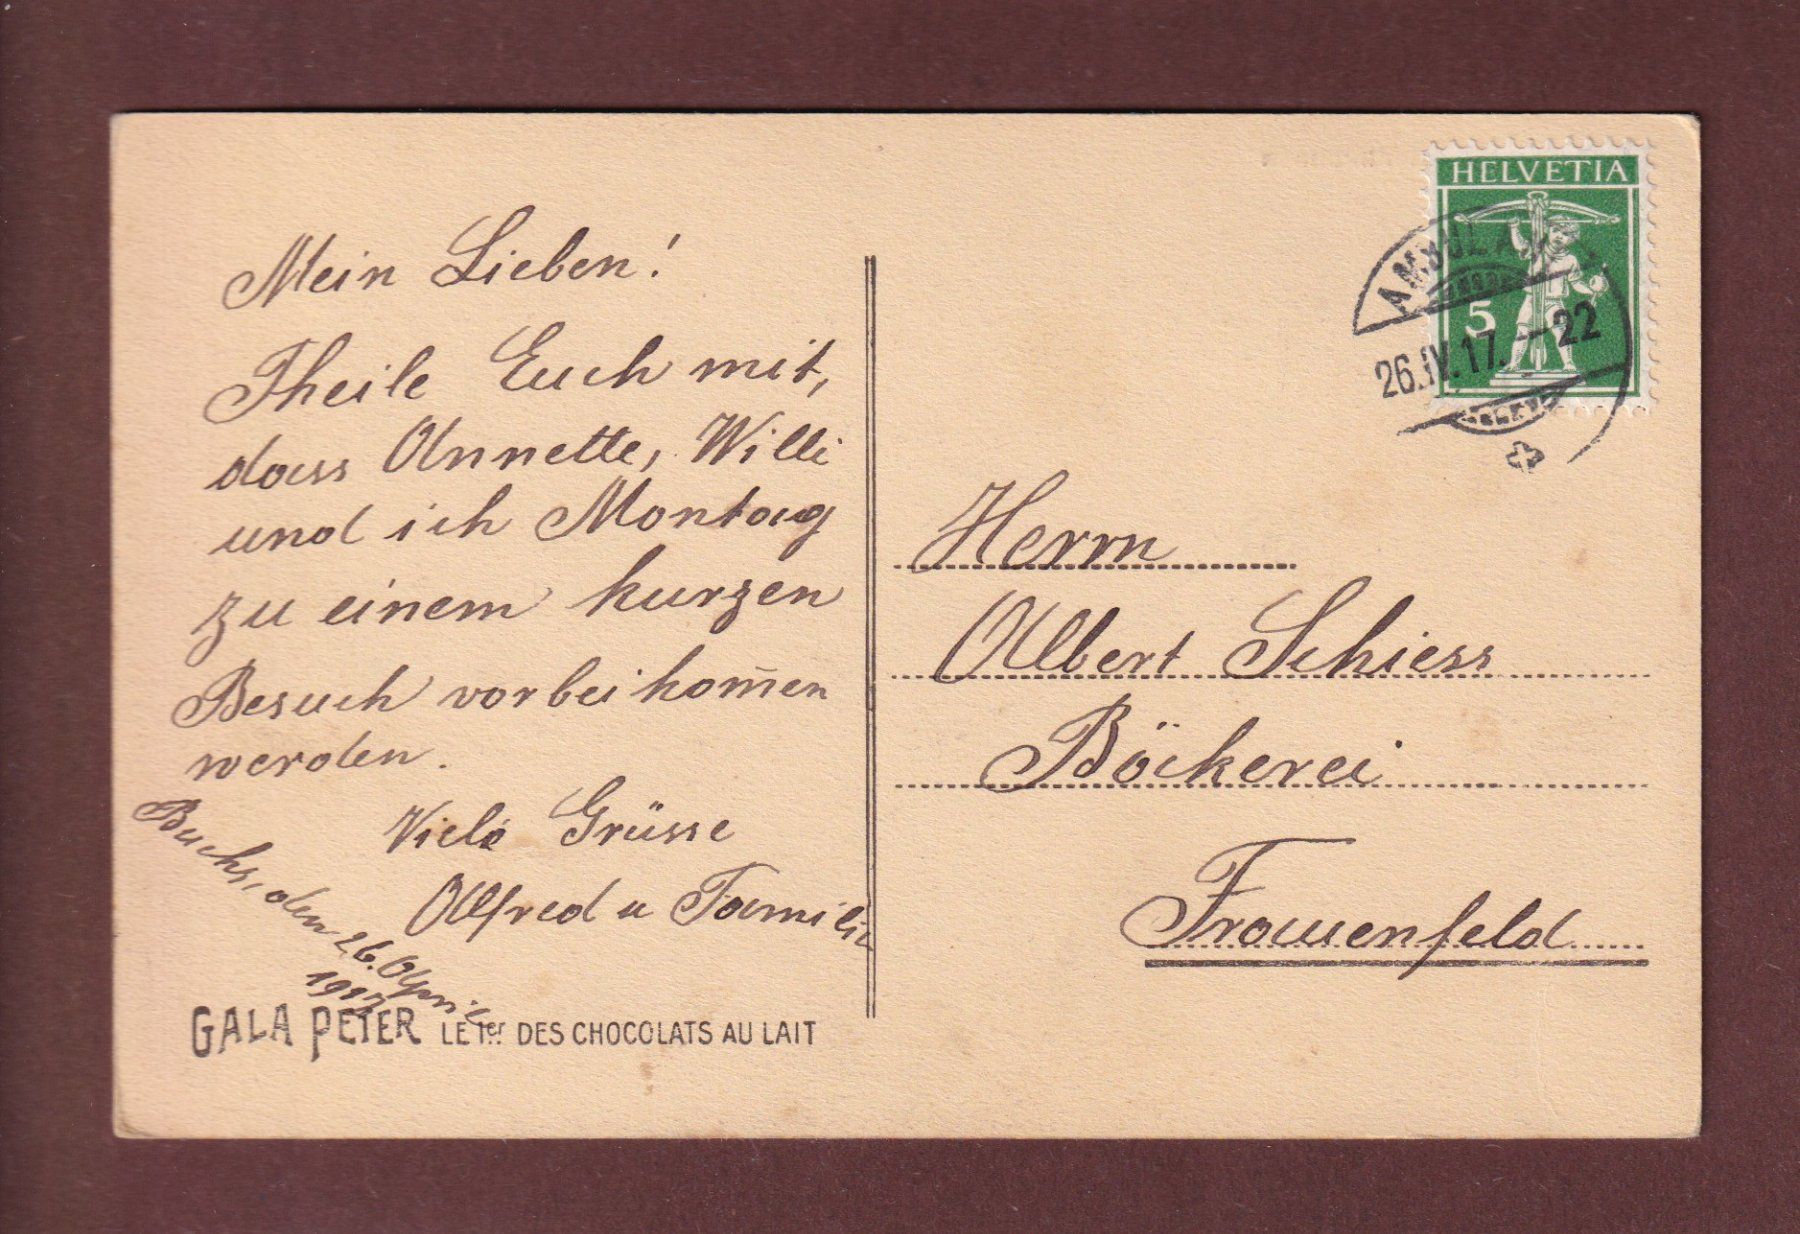 Mein Lieben!
Theile Euch mit,
dass Annette, Willi
und ich Montag
zu einem kurzen
Besuch vorbei kom̄en
werden.
Viele Grüsse
Alfred u Familie
Buchs, den 26. April
1917
GALA PETER LE 1er DES CHOCOLATS AU LAIT
HELVETIA
5
26.IV.17.–22
Herrn
Albert Schiess
Bäckerei
Frauenfeld